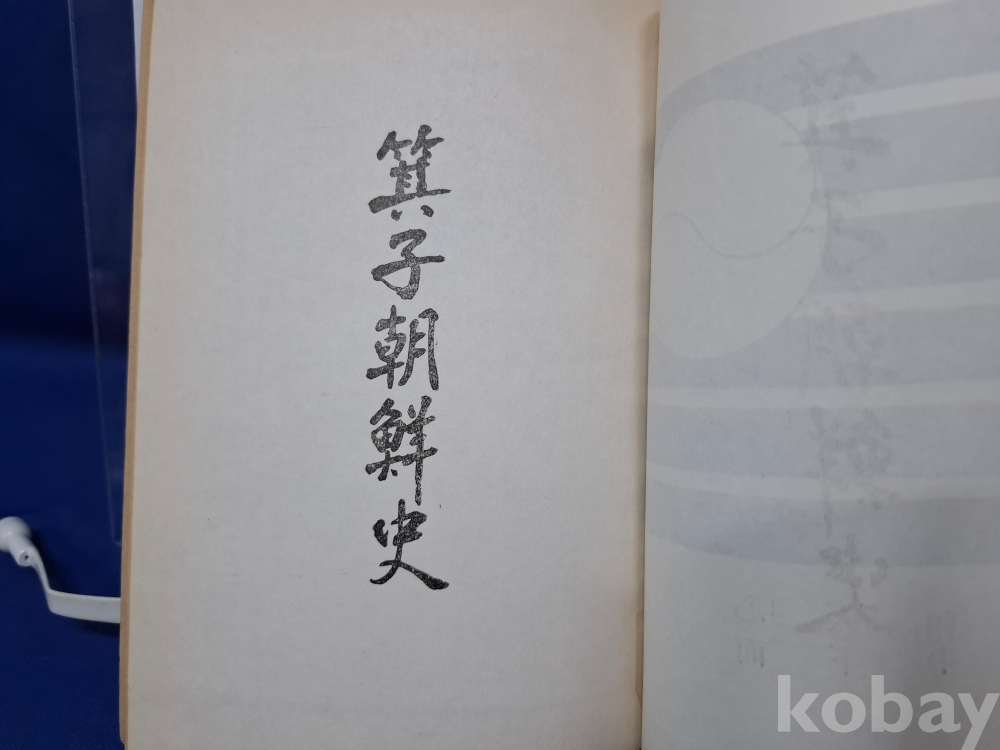 箕子朝鮮史
kobay